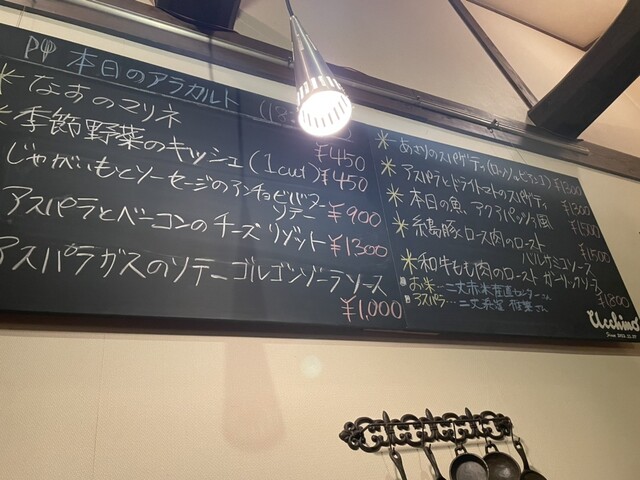 本日のアラカルト
＊なすのマリネ ¥450
＊季節野菜のキッシュ(1cut) ¥450
じゃがいもとソーセージのアンチョビバター
ソテー ¥900
アスパラとベーコンのチーズリゾット ¥1300
アスパラガスのソテーゴルゴンゾーラソース
¥1,000
＊あさりのスパゲティ(ロッソorビアンコ) ¥1300
＊アスパラとドライトマトのスパゲティ ¥1300
＊本日の魚 アクアパッツァ風 ¥1500
＊糸島豚ロース肉のロースト
バルサミコソース ¥1500
＊和牛もも肉のロースト ガーリックソース
¥1800
お米…二丈赤米産直センターさん
アスパラ…二丈糸島
Ucchino